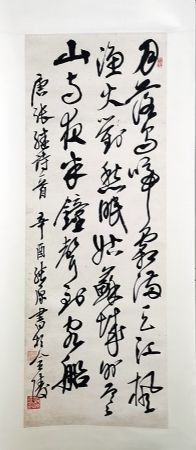 月落烏啼霜滿天江楓
漁火對愁眠姑蘇城外寒
山寺夜半鐘聲到客船
唐張繼詩一首 辛酉 書於金陵